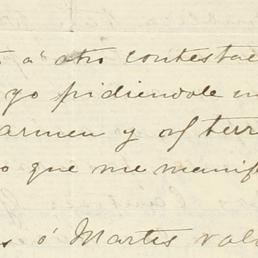 á otro contesta
yo pidiendole un
armen y of terr
o que me manif
s ó Martes volv